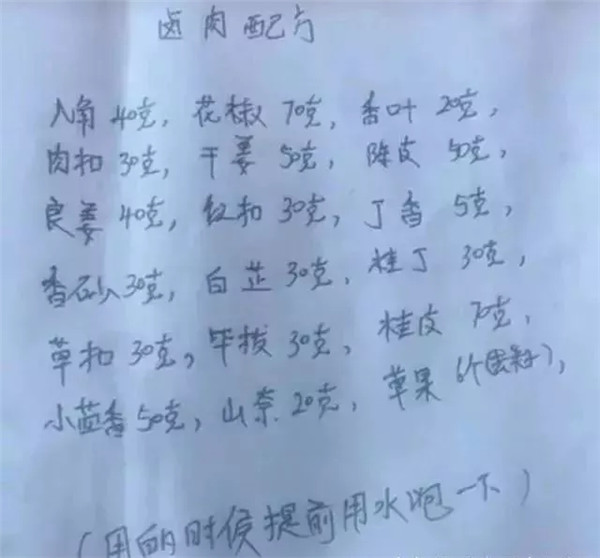 卤肉配方
八角40克，花椒70克，香叶20克，
肉扣30克，干姜50克，陈皮50克，
良姜40克，红扣30克，丁香5克，
香砂30克，白芷30克，桂丁30克，
草扣30克，毕拔30克，桂皮70克，
小茴香50克，山奈20克，草果6个(去籽)，
(用的时候提前用水泡一下)